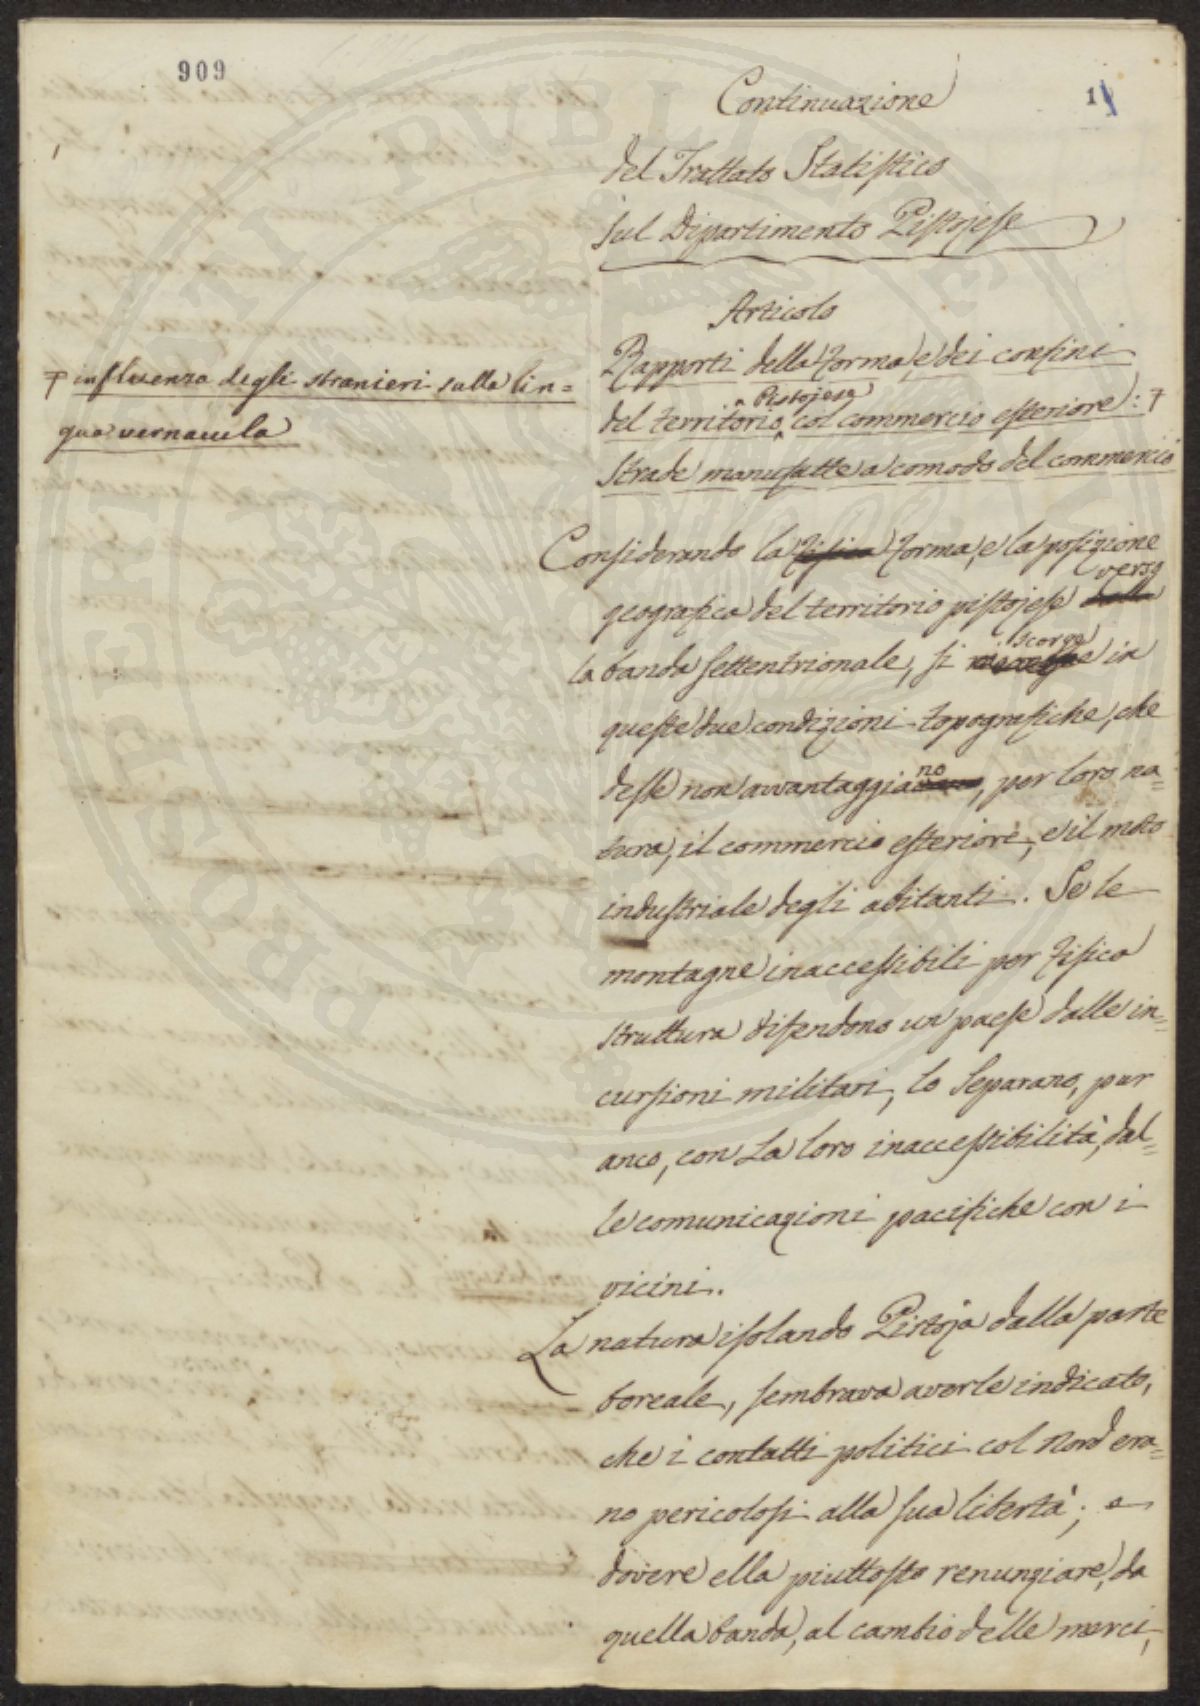 909
1
Continuazione
del Trattato Statistico
sul Dipartimento Pistojese
Articolo
Rapporti della forma, e dei confini
del territorio Pistojese col commercio esteriore: +
+ influenza degli stranieri sulla lin=
gua vernacula
Strade manufatte a comodo del commercio
Considerando la fisica forma, e la posizione
geografica del territorio pistojese della verso
la banda settentrionale, si scorge in
queste due condizioni topografiche, che
desse non avvantaggiano, per loro na=
tura, il commercio esteriore, e il moto
industriale degli abitanti. Se le
montagne inaccessibili per fisica
struttura difendono un paese dalle in=
cursioni militari, lo separano, pur
anco, con la loro inaccessibilità, dal=
le comunicazioni pacifiche con i
vicini.
La natura isolando Pistoja dalla parte
boreale, sembrava averle indicato,
che i contatti politici col nord era=
no pericolosi alla sua libertà; e
dovere ella piuttosto renunziare, da
quella banda, al cambio delle merci,
PROSPICIENTI PUBLICAE UTILITATI